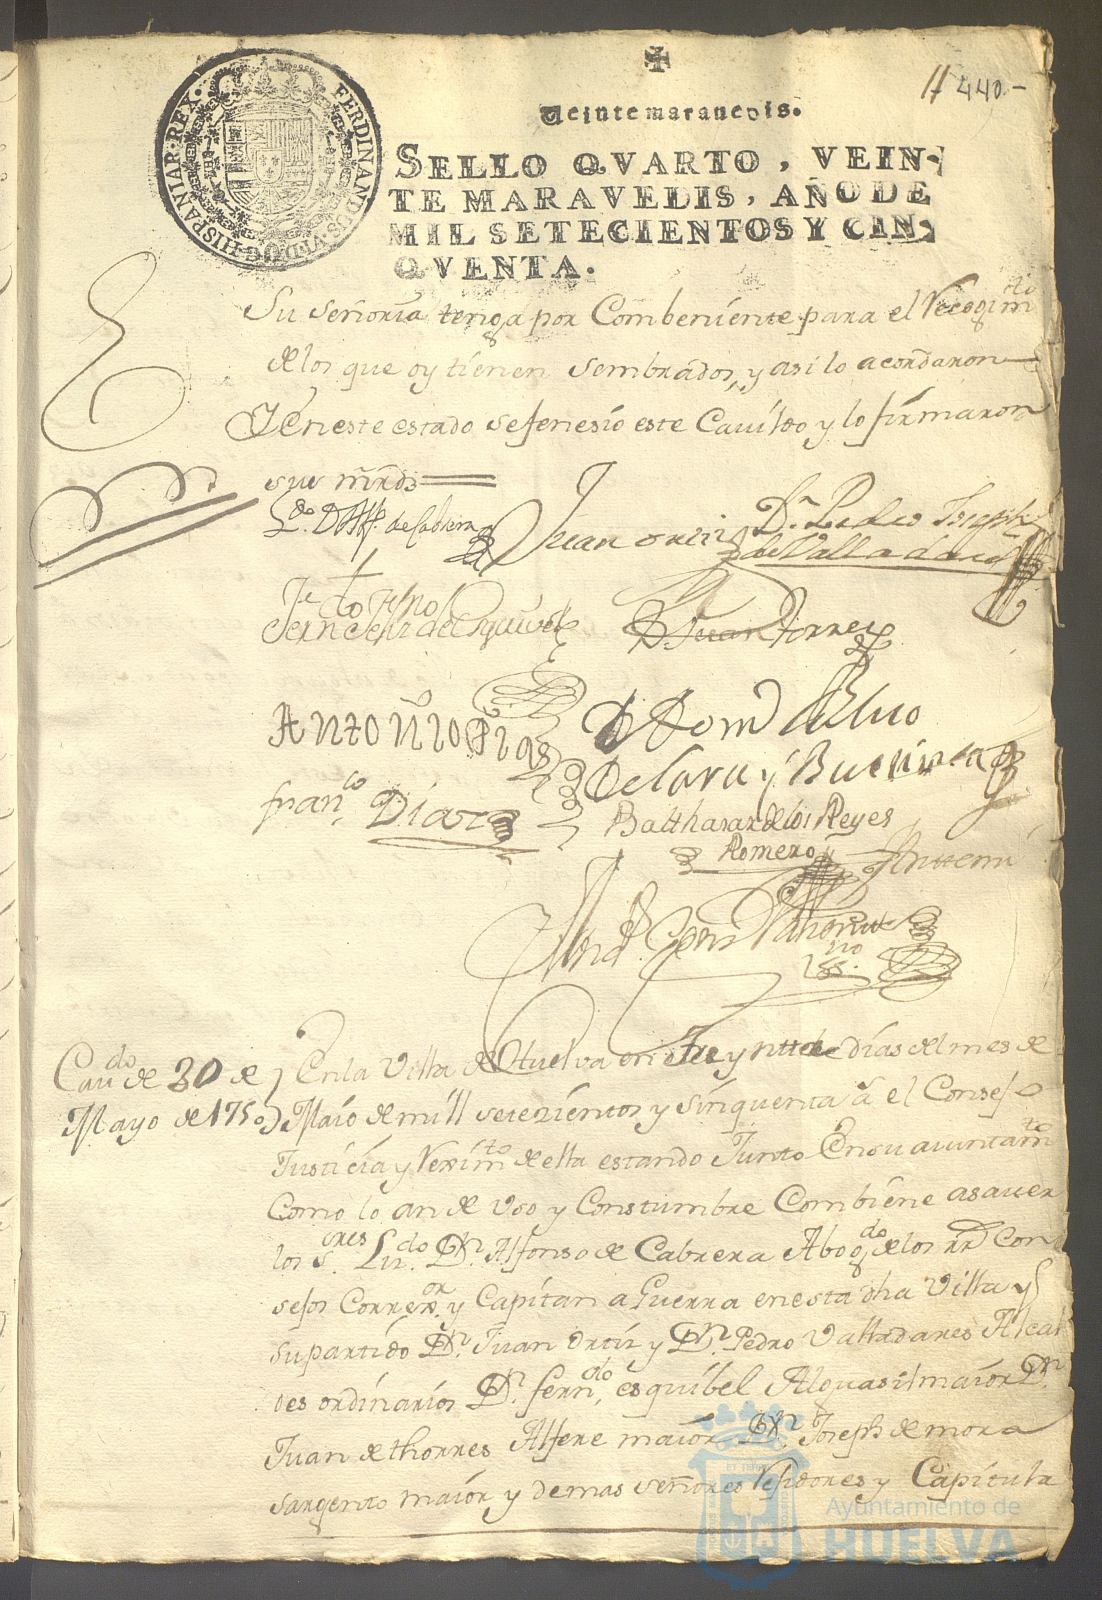 ✠
11 440-
FERDINANDUS·VI·D·G·HISPANIAR·REX·
Veinte maravedis.
SELLO QVARTO, VEIN-
TE MARAVELIS, AÑO DE
MIL SETECIENTOS Y CIN-
QVENTA.
Su Señoria tenga por Combeniente para el Recogim.to
de los que oy tienen sembrados, y asi lo acordaron
Y en este estado se fenesio este Cavildo y lo firmaron
sus mrds
L.do D. Alf. de Cabrera
Juan ortiz
D.n Pedro Joseph
de Valladares
Juan torres
Antonio
D. Dom
de Lara y
fran.co Diaz
Balthasar de los Reyes
Romero
Antemi
Cav.do de 30 de
Mayo de 1750
En la Villa de Huelva en treynta dias del mes de
Maio de mill setezientos y sinquenta a.s el Consejo
Justicia y Reximto de ella estando Junto En su ayuntam.to
Como lo an de Uso y Constumbre Combiene asaver
los S.ores Liz.do D.n Alfonso de Cabrera Abog.do de los RR.s Con
sejos Correx.or y Capitan a Guerra en esta dha Villa y
su partido D.n Juan Ortiz y D.n Pedro Valladares Alcal
des ordinarios D.n fern.do esquibel Alguasil maior D.n
Juan de thorres Alfere maior D.n Joseph de mora
sargento maior y demas señores Rejidores y Capitula
Ayuntamiento de
HUELVA